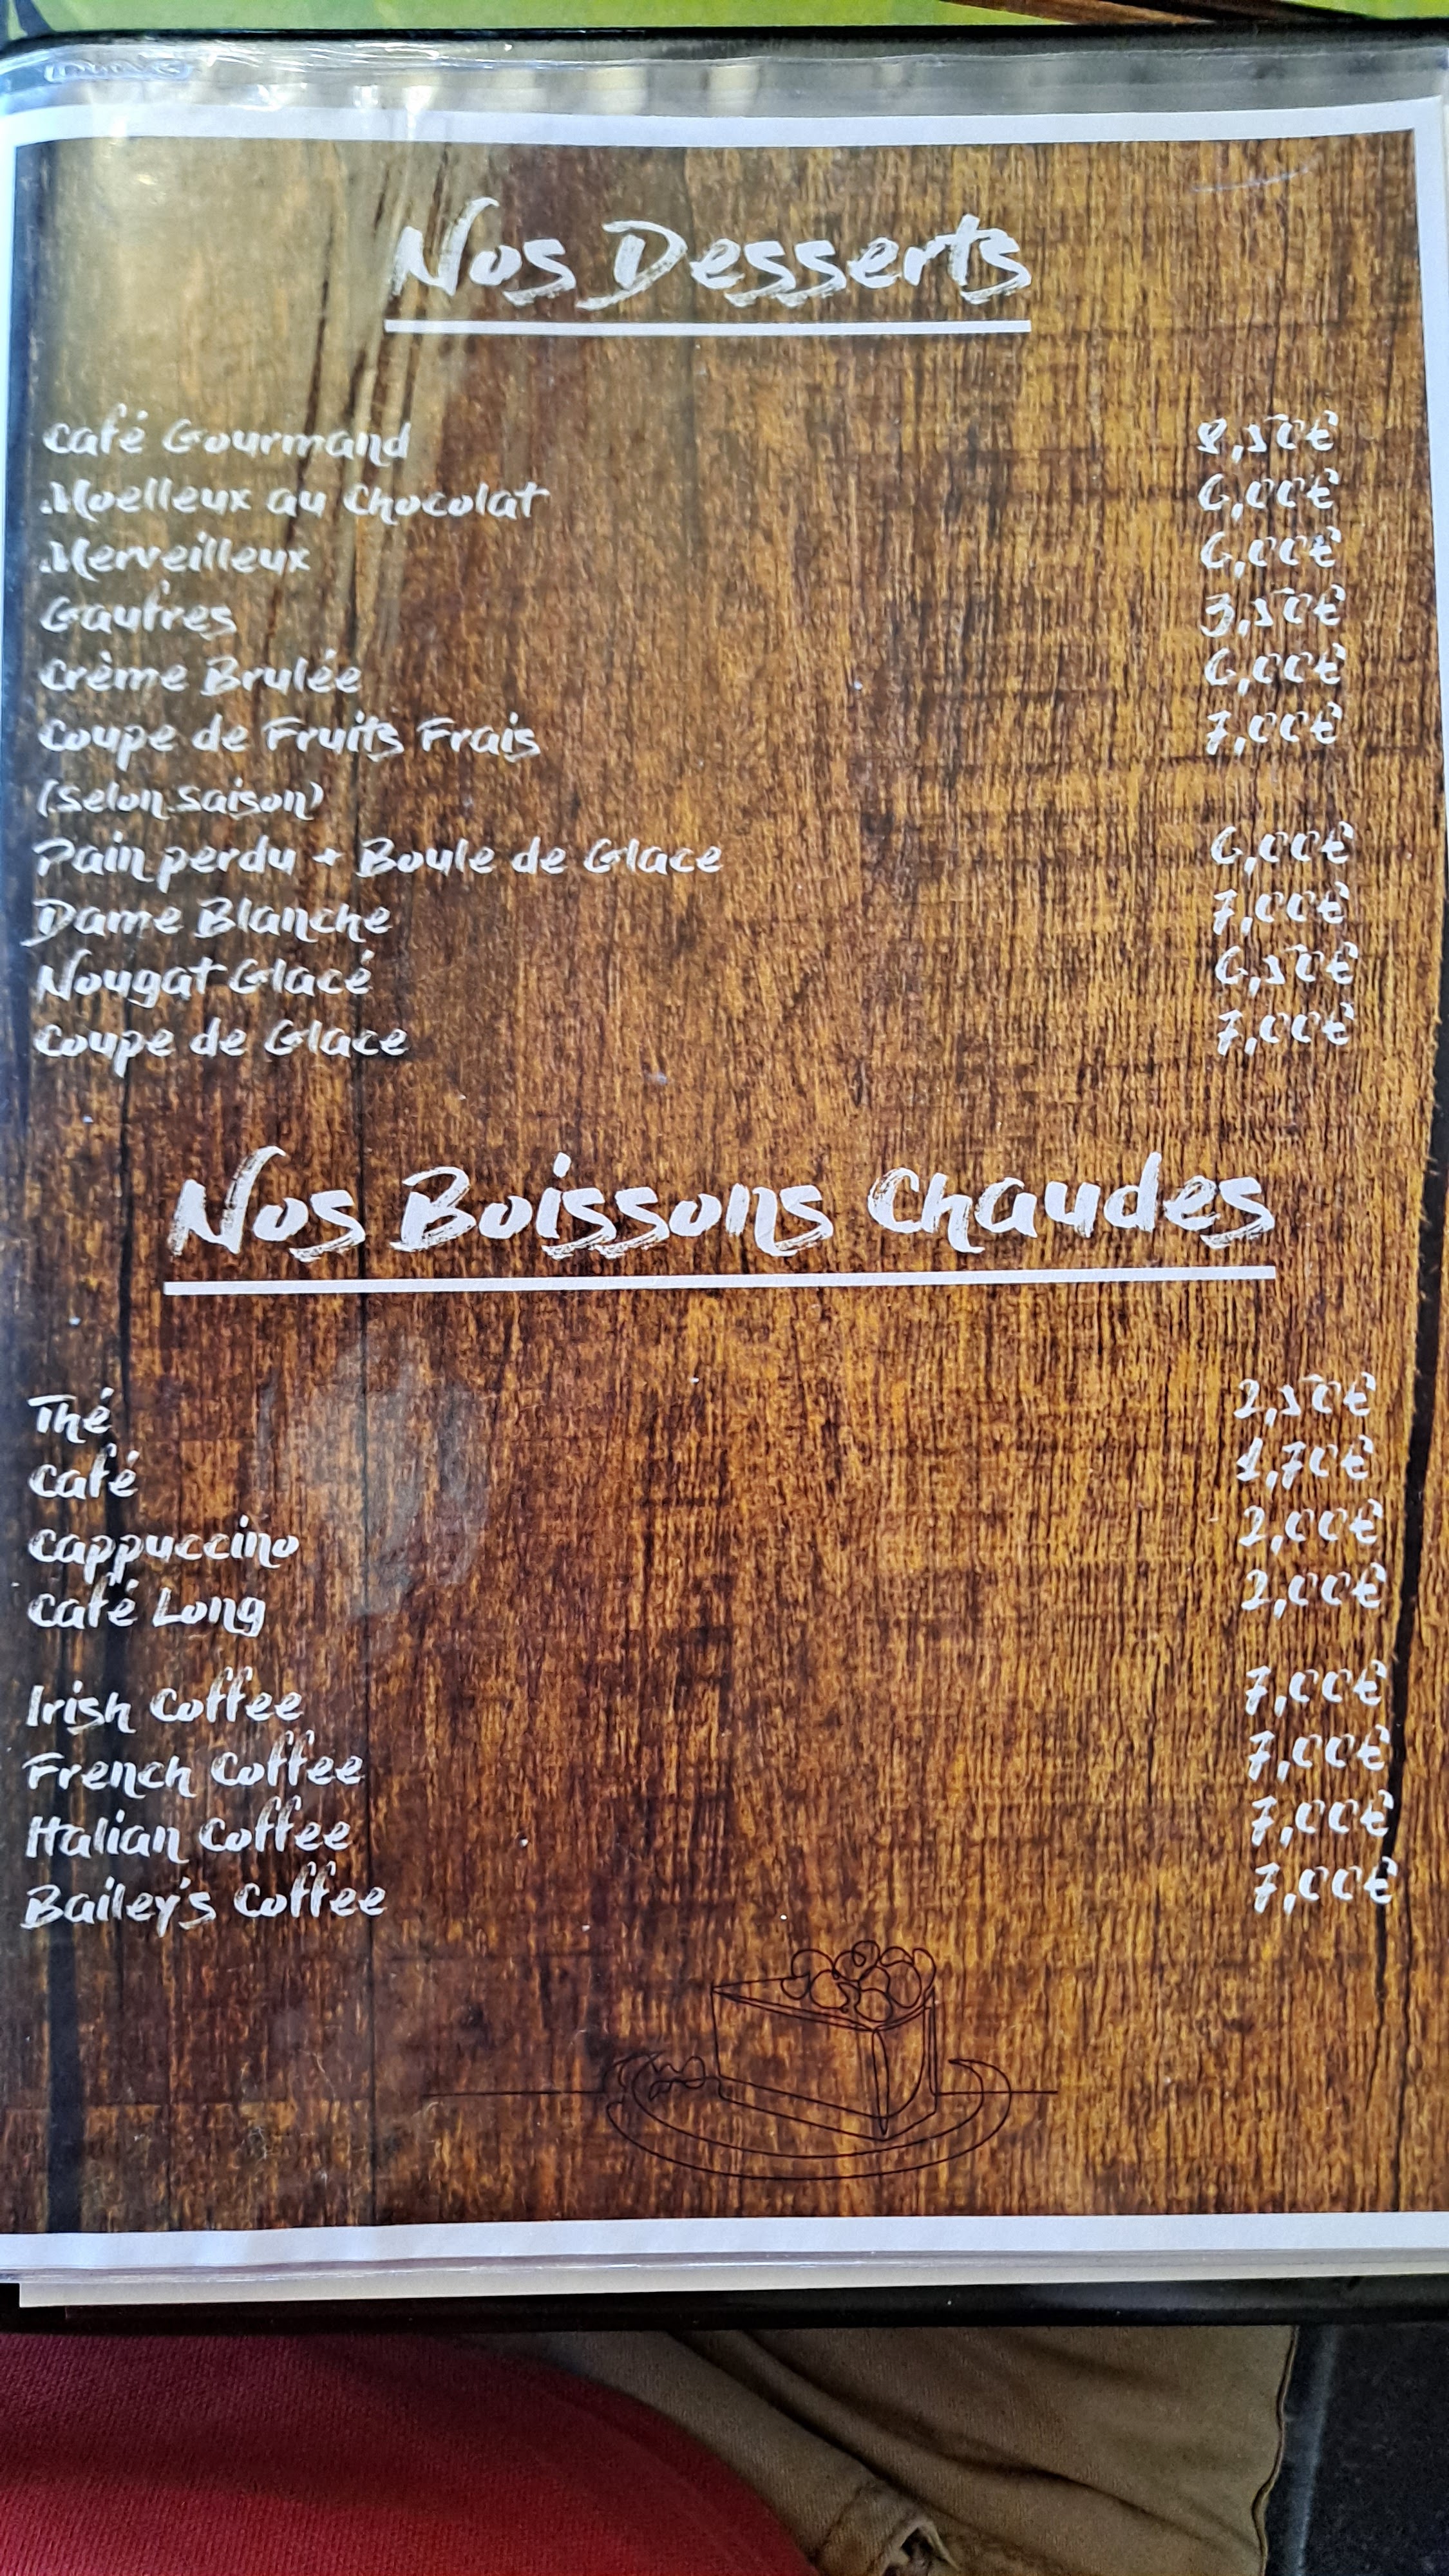 Nos Desserts
Café Gourmand 8,50€
Moelleux au Chocolat 6,00€
Merveilleux 6,00€
Gaufres 3,50€
Crème Brulée 6,00€
Coupe de Fruits Frais 7,00€
(Selon Saison)
Pain perdu + Boule de Glace 6,00€
Dame Blanche 7,00€
Nougat Glacé 6,50€
Coupe de Glace 7,00€
Nos Boissons Chaudes
Thé 2,50€
Café 1,70€
Cappuccino 2,00€
Café Long 2,00€
Irish Coffee 7,00€
French Coffee 7,00€
Italian Coffee 7,00€
Bailey's Coffee 7,00€